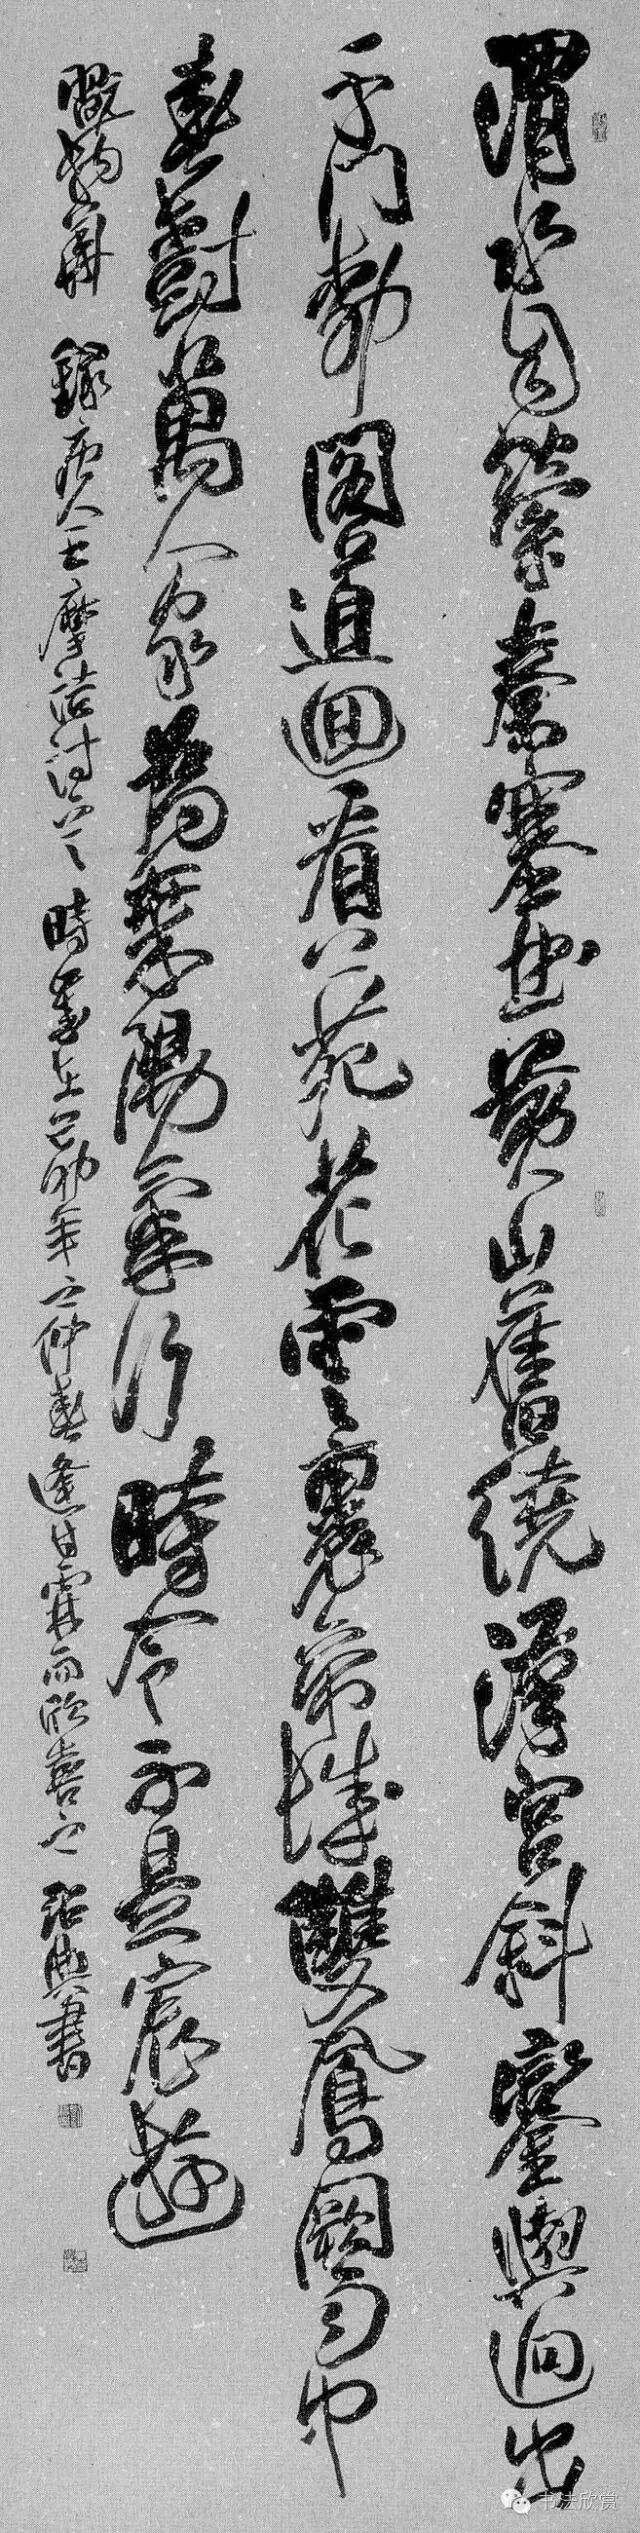 渭水自縈秦塞曲黃山舊繞漢宮斜鑾輿迥出
千門柳閣道迴看上苑花雲裏帝城雙鳳闕雨中
春樹萬人家為乘陽氣行時令不是宸遊
翫物華 錄唐人王摩詰詩一首 時歲在己卯年之仲春逢甘霖而欣喜之 紹典書
书法欣赏